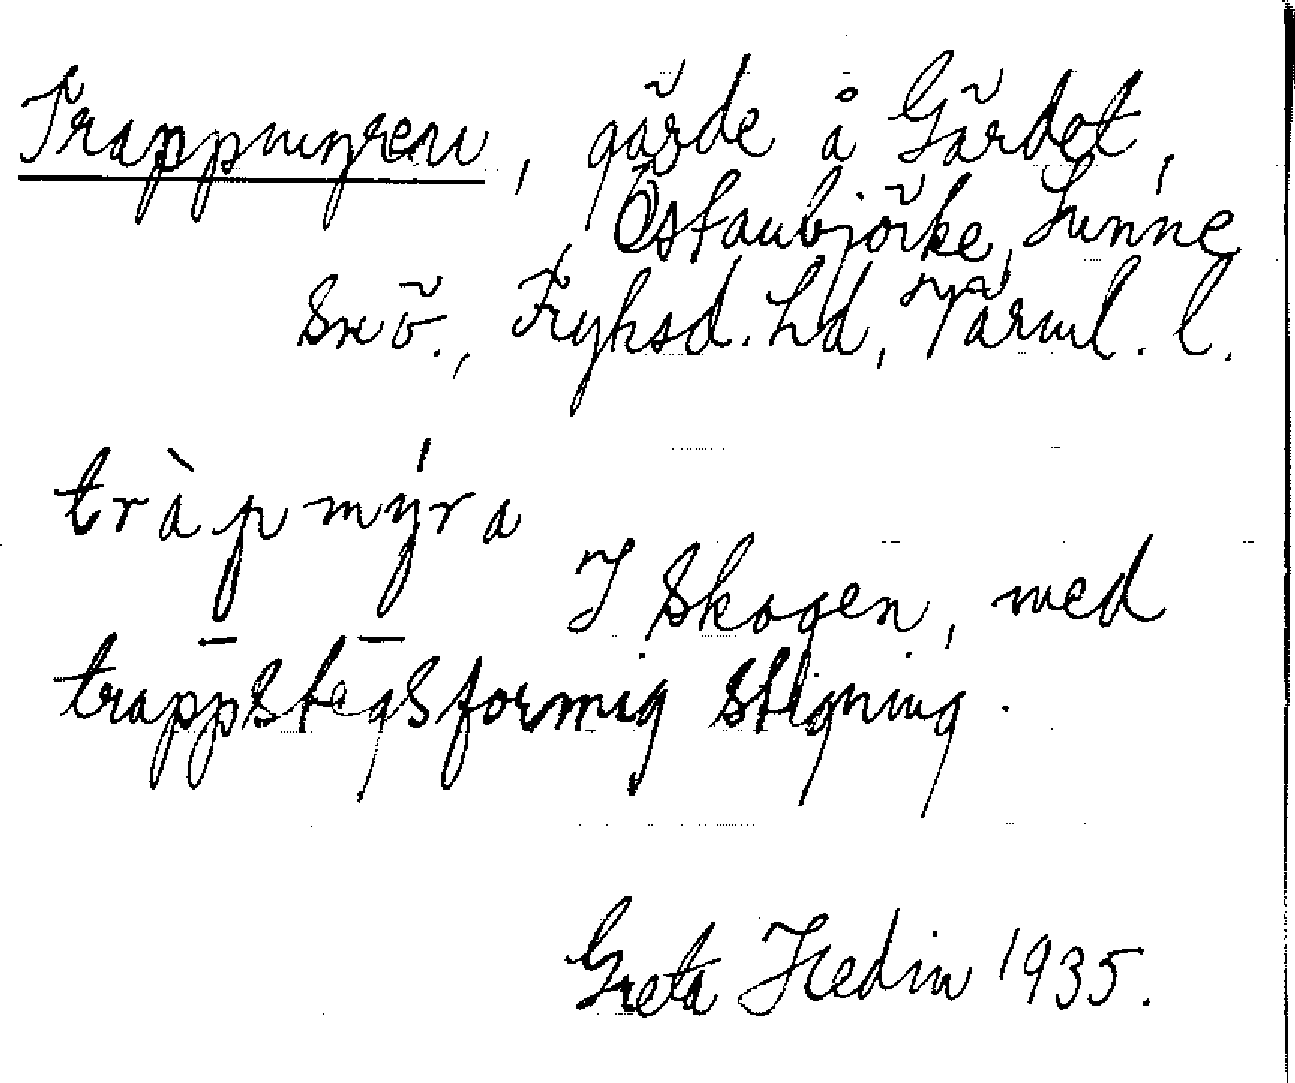 Trappmyren, gärde å Gärdet,
Östanbjörke, Sunne
snö., Fryksd. hd, Värml. l.
tràpmy̍ra
I skogen, med
trappstegsformig stigning.
Greta Hedin 1935.